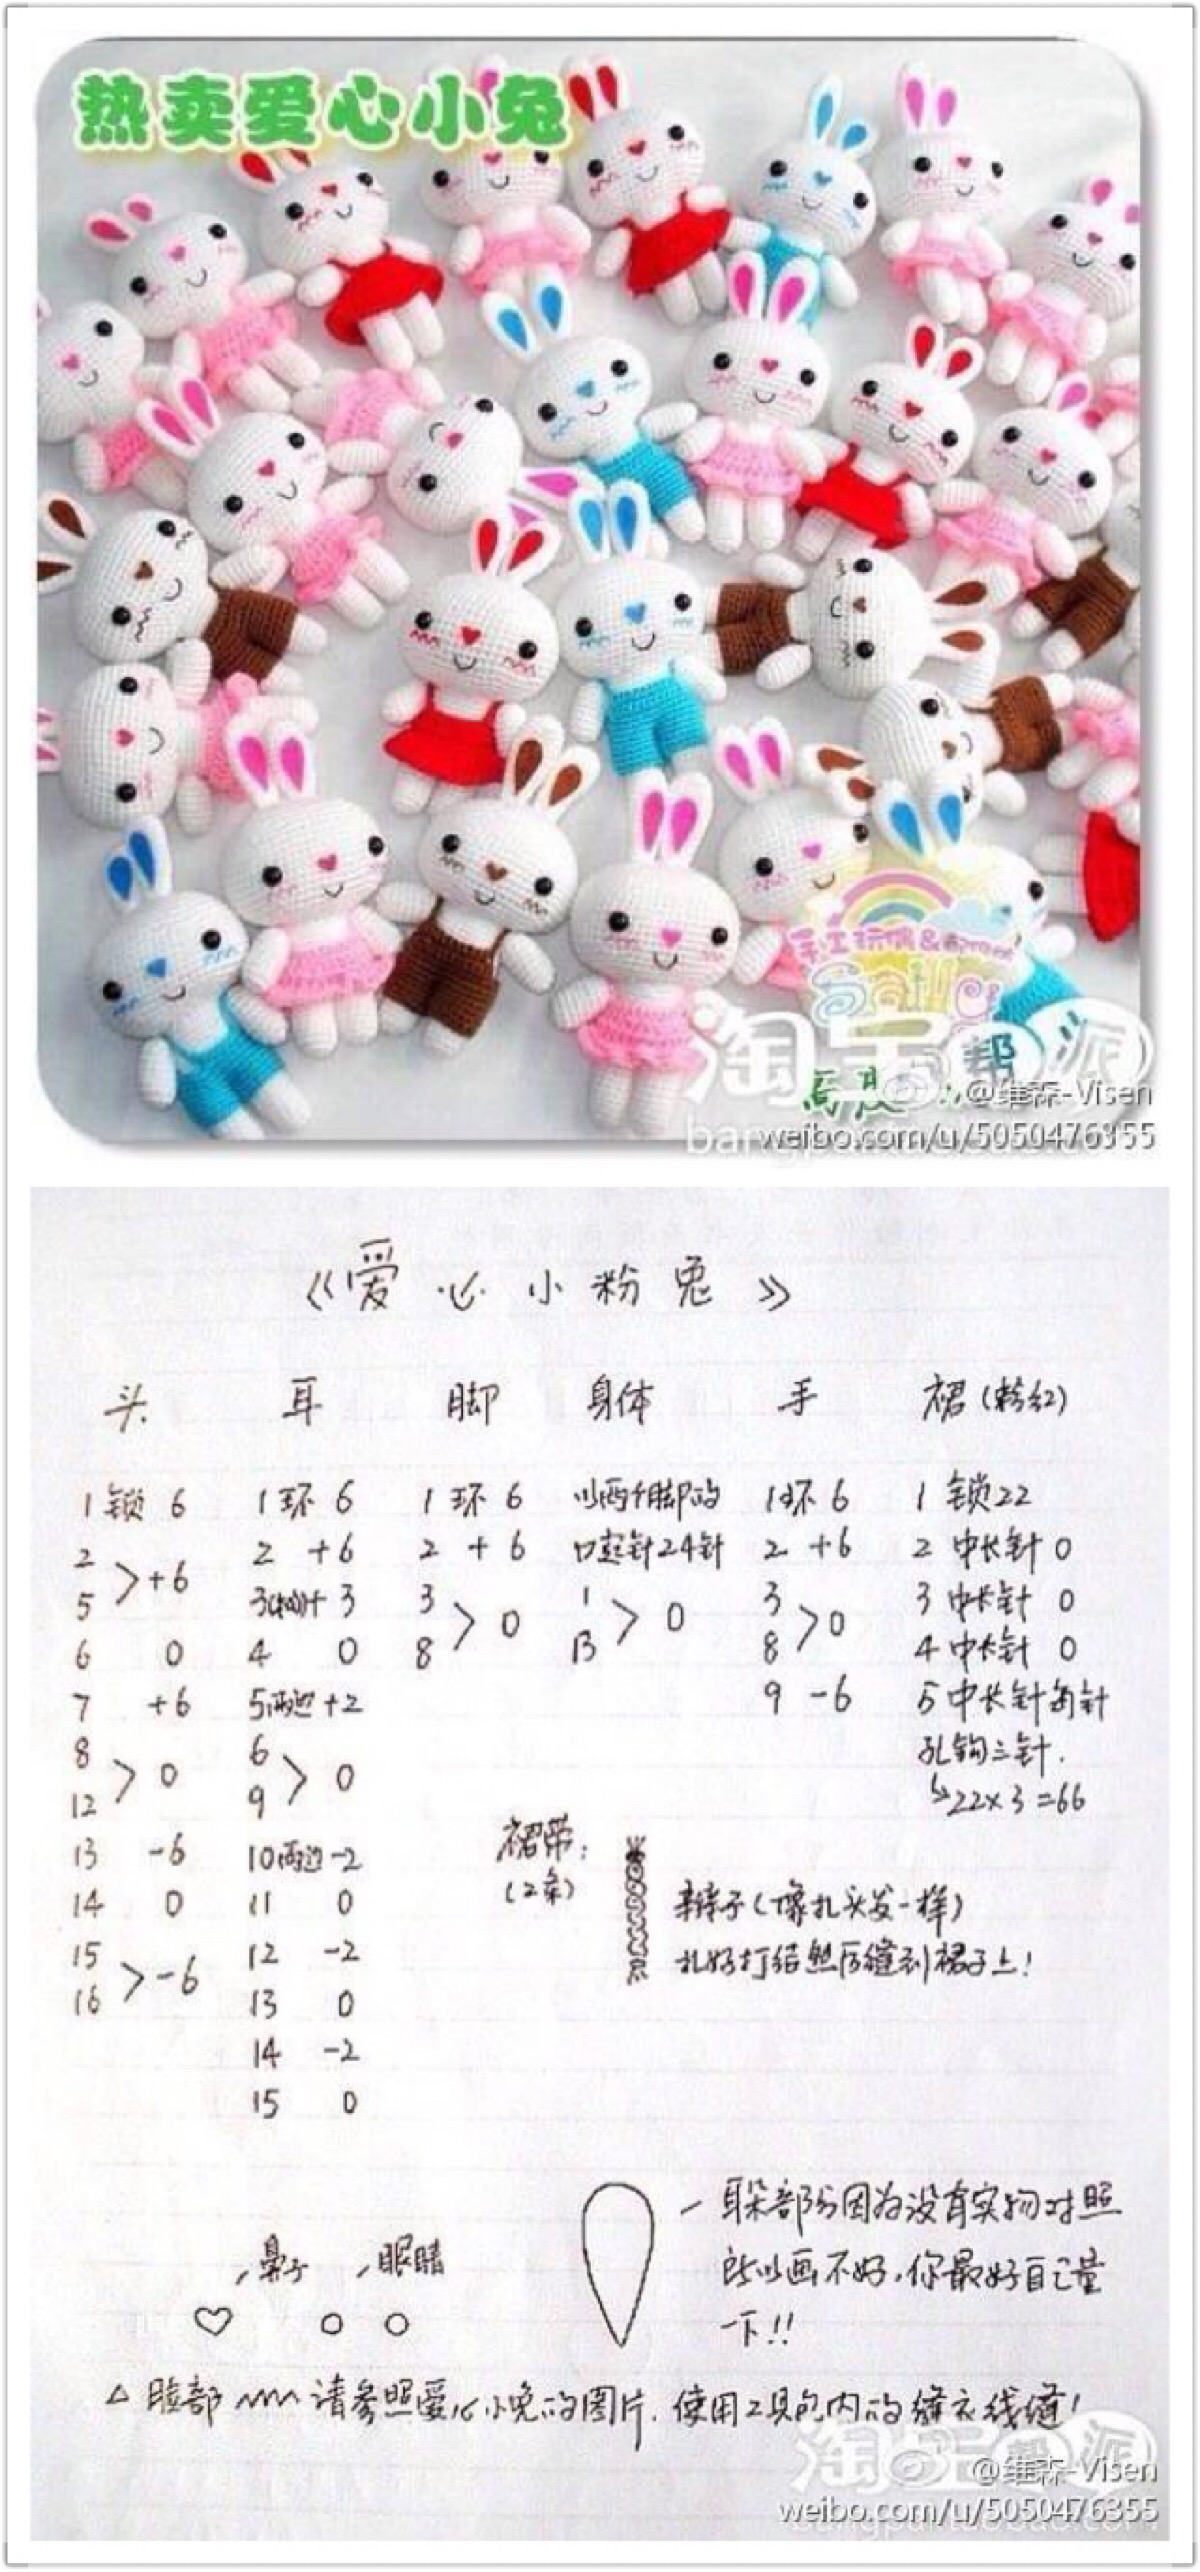 热卖爱心小兔
手工玩偶&
淘宝帮派
@维森-Visen
weibo.com/u/5050476355
《爱心小粉兔》
头 耳 脚 身体 手 裙(粉红)
1锁 6 1环 6 1环 6 以两个脚的 1环 6 1 锁22
2 > +6 2 +6 2 +6 口起针24针 2 +6 2 中长针 0
5 3(松)+3 3 > 0 1 > 0 3 > 0 3 中长针 0
6 0 4 0 8 13 8 4 中长针 0
7 +6 5两边+2 9 -6 5 中长针每针
8 > 0 6 > 0 孔钩三针.
12 9 ↳22×3=66
13 -6 10两边-2 裙带:
14 0 11 0 (2条) 辫子(像扎头发一样)
15 > -6 12 -2 扎好打结然后缝到裙子上!
16 13 0
14 -2
15 0
鼻子 眼睛
耳朵部分因为没有实物对照
所以画不好,你最好自己量
一下!!
△脸部 请参照爱心小兔的图片.使用工具包内的缝衣线缝!
淘宝帮派
@维森-Visen
weibo.com/u/5050476355